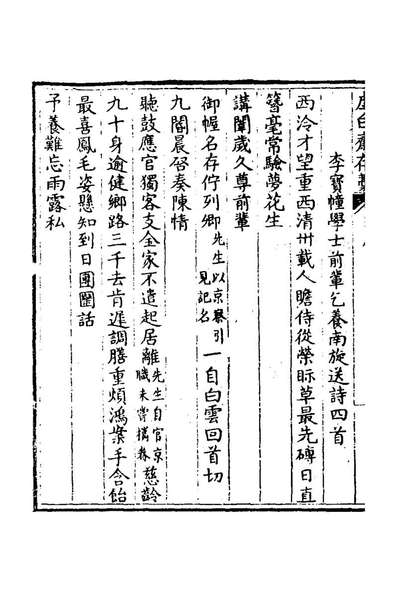 虛白齋存藁
李寶幢學士前輩乞養南旋送詩四首
西泠才望重西清卅載人瞻侍從榮眎草最先磚日直
簪毫常驗夢花生
講闈歲久尊前輩
御幄名存佇列卿先生以京察引見記名一自白雲回首切
九閽晨啓奏陳情
聽鼓應官獨客支全家不遣起居離先生自官京職未嘗攜眷慈齡
九十身逾健鄉路三千去肯遲調膳重煩鴻案手含飴
最喜鳳毛姿懸知到日團圞話
予養難忘雨露私